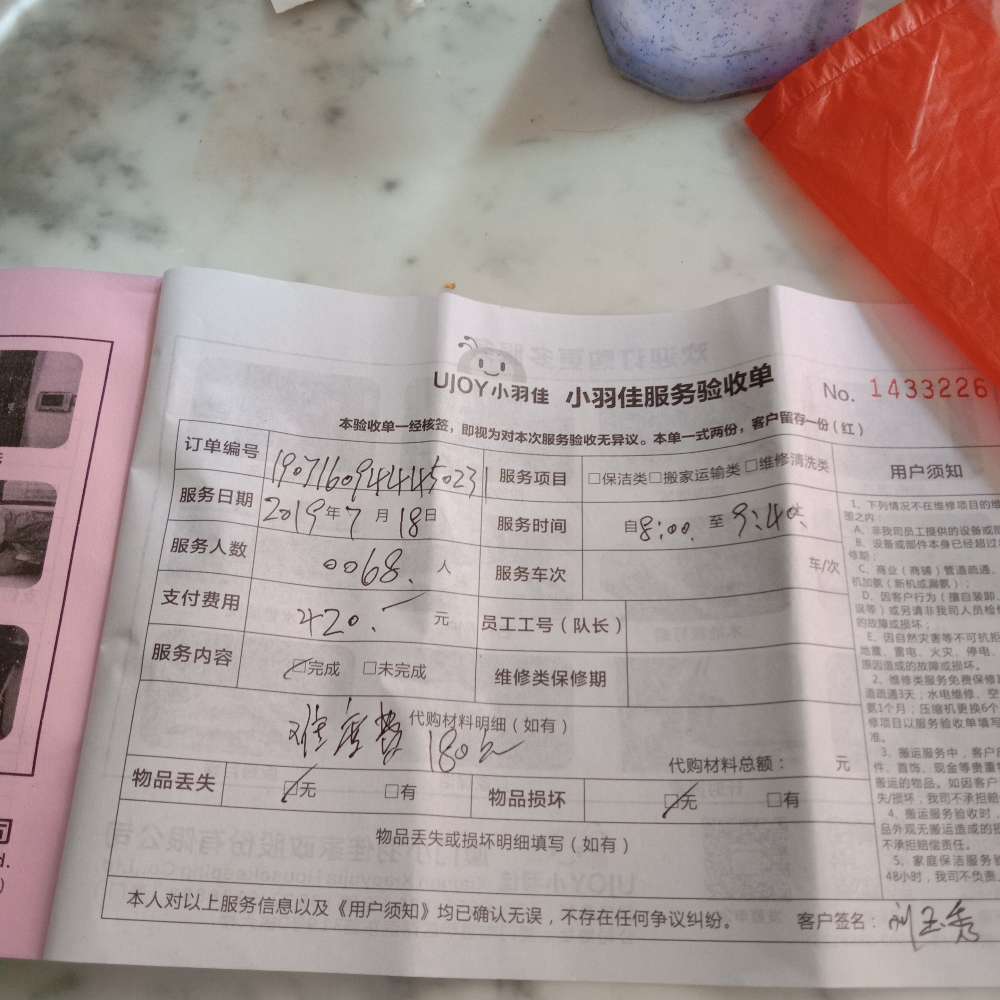 UJOY小羽佳 小羽佳服务验收单
No. 1433226
本验收单一经核签，即视为对本次服务验收无异议。本单一式两份，客户留存一份（红）
订单编号 190716094445023 服务项目 □保洁类□搬家运输类□维修清洗类 用户须知
服务日期 2019年7月18日 服务时间 自8:00 至9:40
服务人数 0068. 人 服务车次 车/次
支付费用 420. 元 员工工号（队长）
服务内容 □完成 □未完成 维修类保修期
代购材料明细（如有）
难度费 180元
代购材料总额： 元
物品丢失 □无 □有 物品损坏 □无 □有
物品丢失或损坏明细填写（如有）
本人对以上服务信息以及《用户须知》均已确认无误，不存在任何争议纠纷。 客户签名：刘玉秀
1、下列情况不在维修项目的
围之内：
A、非我司员工提供的设备或
B、设备或部件本身已经超过
修期；
C、商业（商铺）管道疏通、
机加氨（新机或漏氨）；
D、因客户行为（擅自装卸、
误等）或另请非我司人员检
的故障或损坏；
E、因自然灾害等不可抗拒
地震、雷电、火灾、停电、
原因造成的故障或损坏。
2、维修类服务免费保修
道疏通3天；水电维修、空
氨1个月；压缩机更换6个
修项目以服务验收单填写
准。
3、搬运服务中，客户
件、首饰、现金等贵重
搬运的物品。如因客户
失/损坏，我司不承担
4、搬运服务验收时，
品外观无搬运造成的损
不承担赔偿责任。
5、家庭保洁服务
48小时，我司不负责